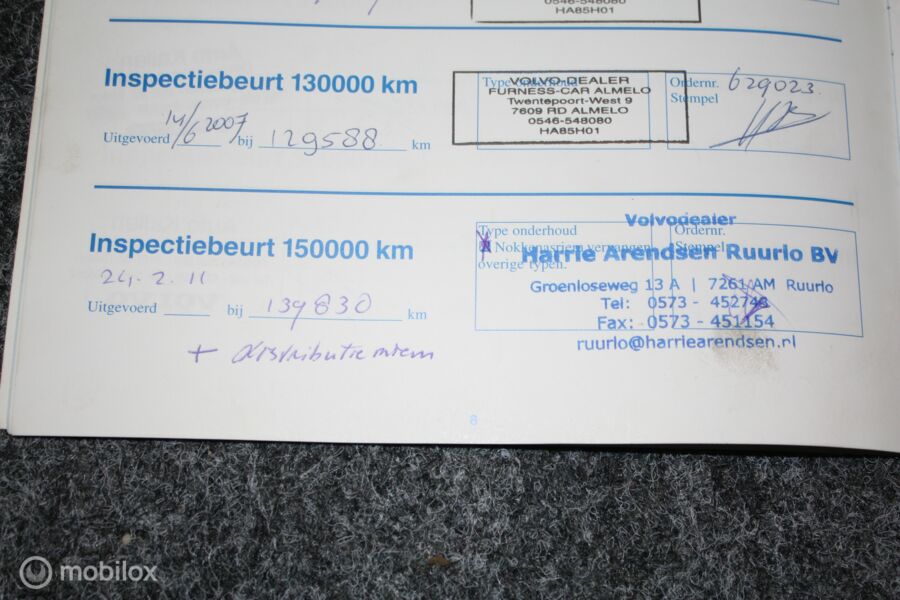 0546-548080
HA85H01
Inspectiebeurt 130000 km
Uitgevoerd 14/6 2007 bij 129588 km
Type onderhoud
VOLVO-DEALER
FURNESS-CAR ALMELO
Twentepoort-West 9
7609 RD ALMELO
0546-548080
HA85H01
Ordernr. 629023.
Stempel
Inspectiebeurt 150000 km
24.2.11
Uitgevoerd bij 139830 km
+ distributieriem
Type onderhoud
Nokkenasriem vervangen
overige typen.
Ordernr.
Stempel
Volvodealer
Harrie Arendsen Ruurlo BV
Groenloseweg 13 A | 7261 AM Ruurlo
Tel: 0573 - 452743
Fax: 0573 - 451154
ruurlo@harriearendsen.nl
8
mobilox